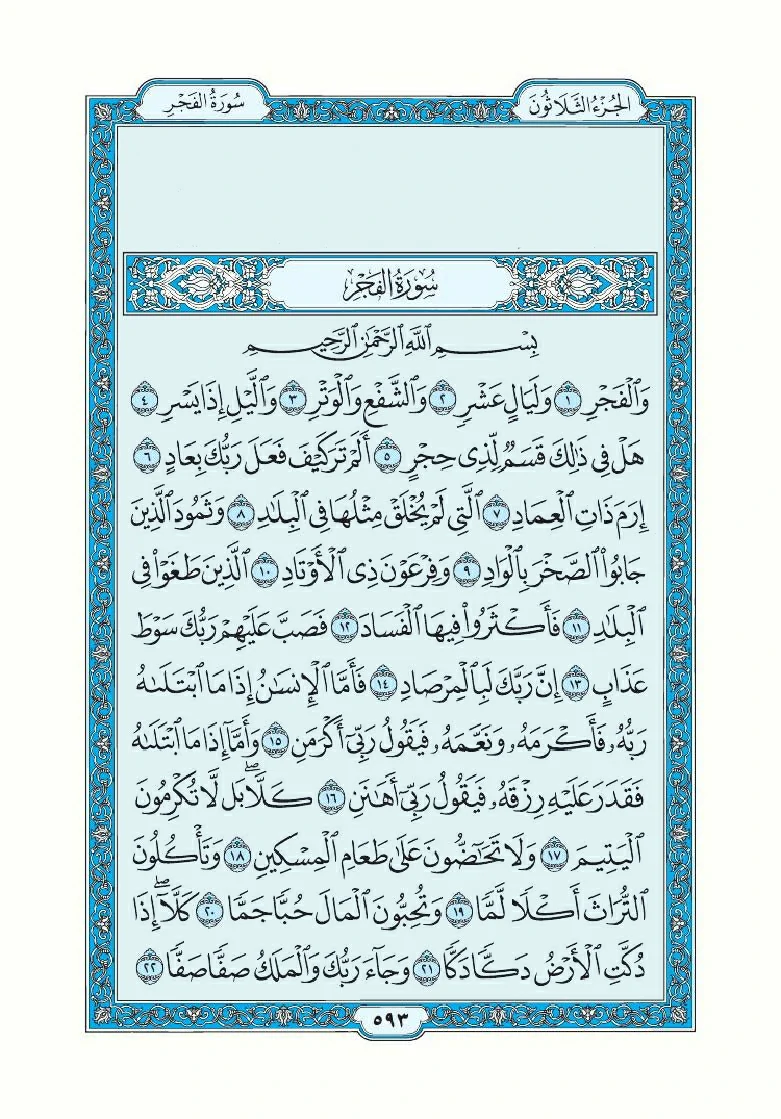 الجُزْءُ الثَّلَاثُونَ
سُورَةُ الفَجْرِ
سُورَةُ الفَجْرِ
بِسْمِ ٱللَّهِ ٱلرَّحْمَٰنِ ٱلرَّحِيمِ
وَٱلْفَجْرِ ١ وَلَيَالٍ عَشْرٍ ٢ وَٱلشَّفْعِ وَٱلْوَتْرِ ٣ وَٱلَّيْلِ إِذَا يَسْرِ ٤
هَلْ فِى ذَٰلِكَ قَسَمٌ لِّذِى حِجْرٍ ٥ أَلَمْ تَرَ كَيْفَ فَعَلَ رَبُّكَ بِعَادٍ ٦
إِرَمَ ذَاتِ ٱلْعِمَادِ ٧ ٱلَّتِى لَمْ يُخْلَقْ مِثْلُهَا فِى ٱلْبِلَٰدِ ٨ وَثَمُودَ ٱلَّذِينَ
جَابُوا۟ ٱلصَّخْرَ بِٱلْوَادِ ٩ وَفِرْعَوْنَ ذِى ٱلْأَوْتَادِ ١٠ ٱلَّذِينَ طَغَوْا۟ فِى
ٱلْبِلَٰدِ ١١ فَأَكْثَرُوا۟ فِيهَا ٱلْفَسَادَ ١٢ فَصَبَّ عَلَيْهِمْ رَبُّكَ سَوْطَ
عَذَابٍ ١٣ إِنَّ رَبَّكَ لَبِٱلْمِرْصَادِ ١٤ فَأَمَّا ٱلْإِنسَٰنُ إِذَا مَا ٱبْتَلَىٰهُ
رَبُّهُۥ فَأَكْرَمَهُۥ وَنَعَّمَهُۥ فَيَقُولُ رَبِّىٓ أَكْرَمَنِ ١٥ وَأَمَّآ إِذَا مَا ٱبْتَلَىٰهُ
فَقَدَرَ عَلَيْهِ رِزْقَهُۥ فَيَقُولُ رَبِّىٓ أَهَٰنَنِ ١٦ كَلَّا ۖ بَل لَّا تُكْرِمُونَ
ٱلْيَتِيمَ ١٧ وَلَا تَحَٰٓضُّونَ عَلَىٰ طَعَامِ ٱلْمِسْكِينِ ١٨ وَتَأْكُلُونَ
ٱلتُّرَاثَ أَكْلًا لَّمًّا ١٩ وَتُحِبُّونَ ٱلْمَالَ حُبًّا جَمًّا ٢٠ كَلَّآ ۖ إِذَا
دُكَّتِ ٱلْأَرْضُ دَكًّا دَكًّا ٢١ وَجَآءَ رَبُّكَ وَٱلْمَلَكُ صَفًّا صَفًّا ٢٢
٥٩٣